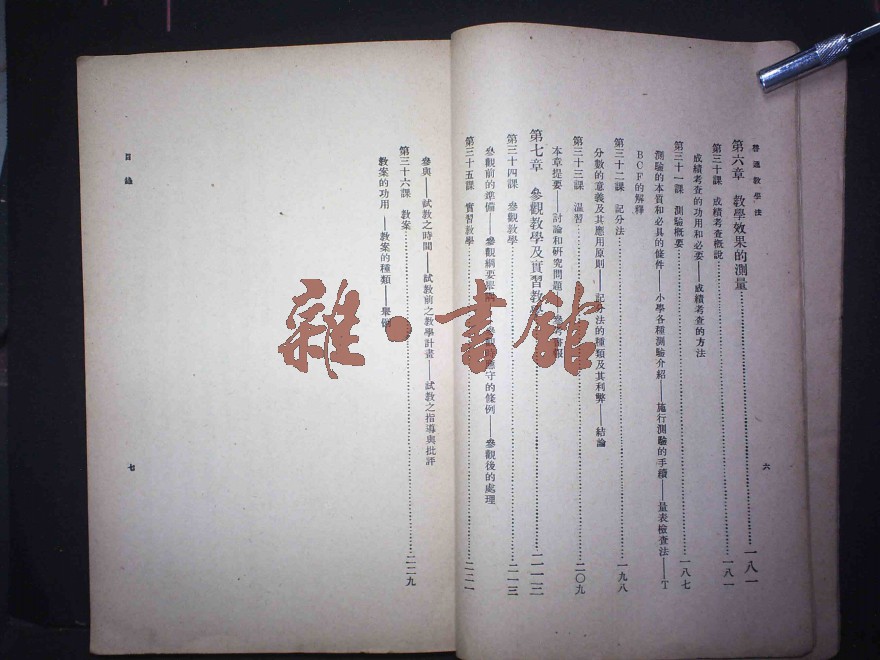 普通教學法
第六章 教學效果的測量……一八一
第三十課 成績考查概說……一八一
成績考查的功用和必要——成績考查的方法
第三十一課 測驗概要……一八七
測驗的本質和必具的條件——小學各種測驗介紹——施行測驗的手續——量表檢查法——T
BCF的解釋
第三十二課 記分法……一九八
分數的意義及其應用原則——記分法的種類及其利弊——結論
第三十三課 溫習……二〇九
本章提要——討論和研究問題
第七章 參觀教學及實習教學……二一三
第三十四課 參觀教學……二一三
參觀前的準備——參觀綱要舉 守的條例——參觀後的處理
第三十五課 實習教學……二二一
六
參與——試教之時間——試教前之教學計畫——試教之指導與批評
第三十六課 教案……二二九
教案的功用——教案的種類——舉例
目錄
七
雜·書館